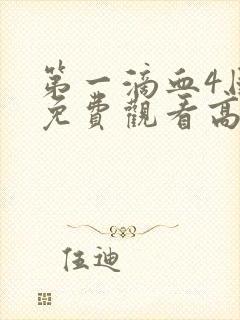 第一滴血4
免費觀看高
伍迪